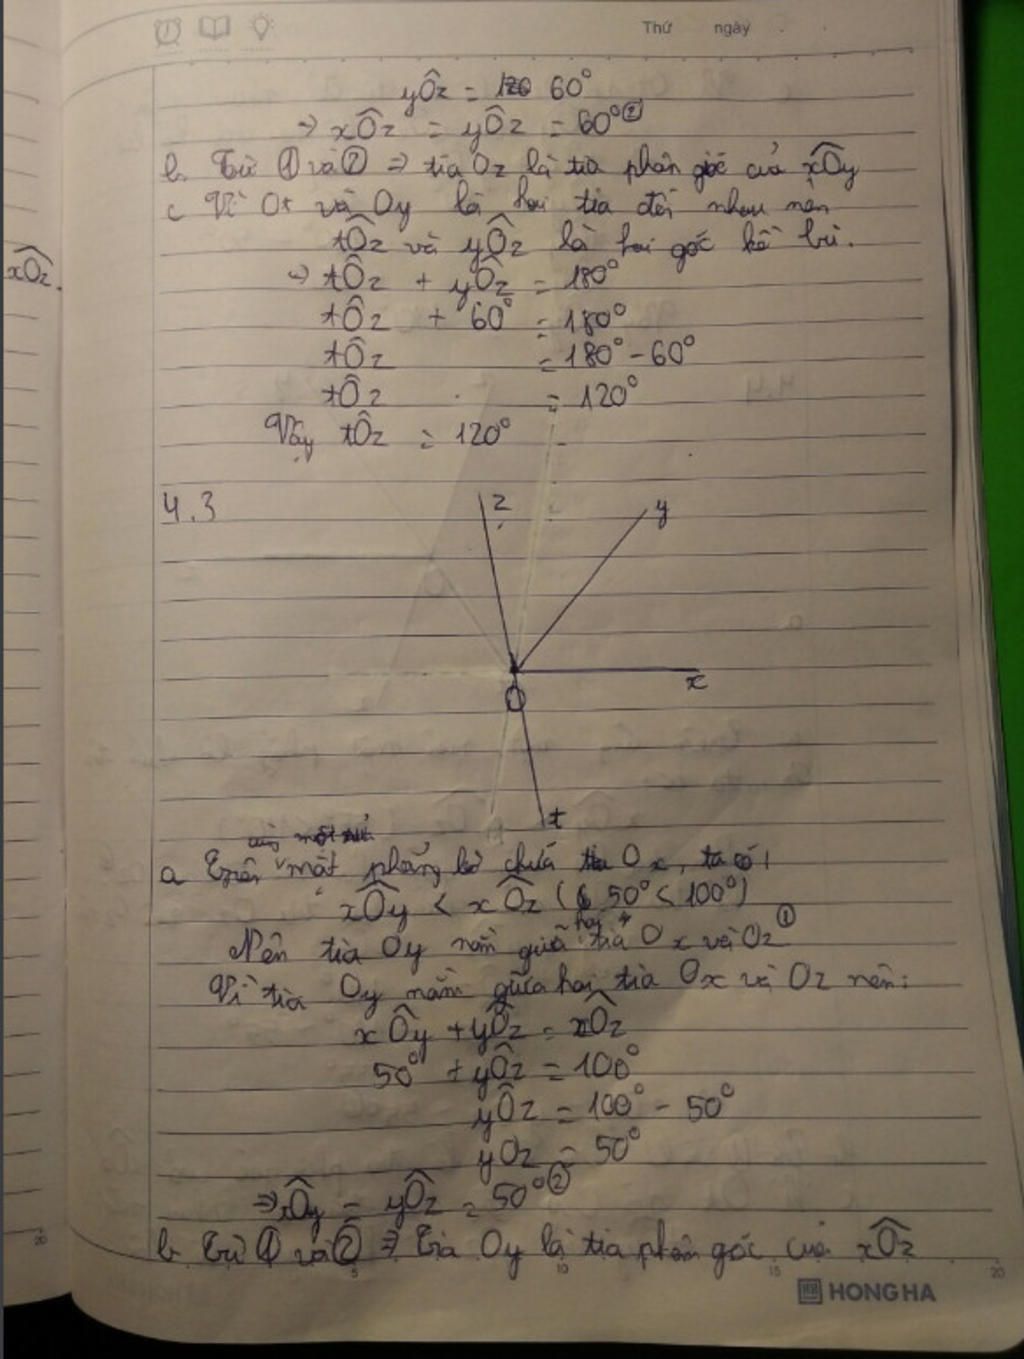 Thứ ngày
yÔz = 120 60°
=> xÔz = yÔz = 60° ②
b. Từ ① và ② => tia Oz là tia phân giác của xÔy
c Vì Ot và Oy là hai tia đối nhau nên
tÔz và yÔz là hai góc kề bù.
xÔz.
=> tÔz + yÔz = 180°
tÔz + 60° = 180°
tÔz = 180° - 60°
tÔz = 120°
Vậy tÔz = 120°
4.3
z
y
x
O
t
cùng một nửa
a Trên mặt phẳng bờ chứa tia Ox, ta có:
xÔy < xÔz ( 50° < 100°)
hai
Nên tia Oy nằm giữa tia Ox và Oz ①
Vì tia Oy nằm giữa hai tia Ox và Oz nên:
xÔy + yÔz = xÔz
50° + yÔz = 100°
yÔz = 100° - 50°
yOz = 50°
=> xÔy = yÔz = 50° ②
b Từ ① và ② => Tia Oy là tia phân góc của xÔz
20
5 10 15 20
HONG HA